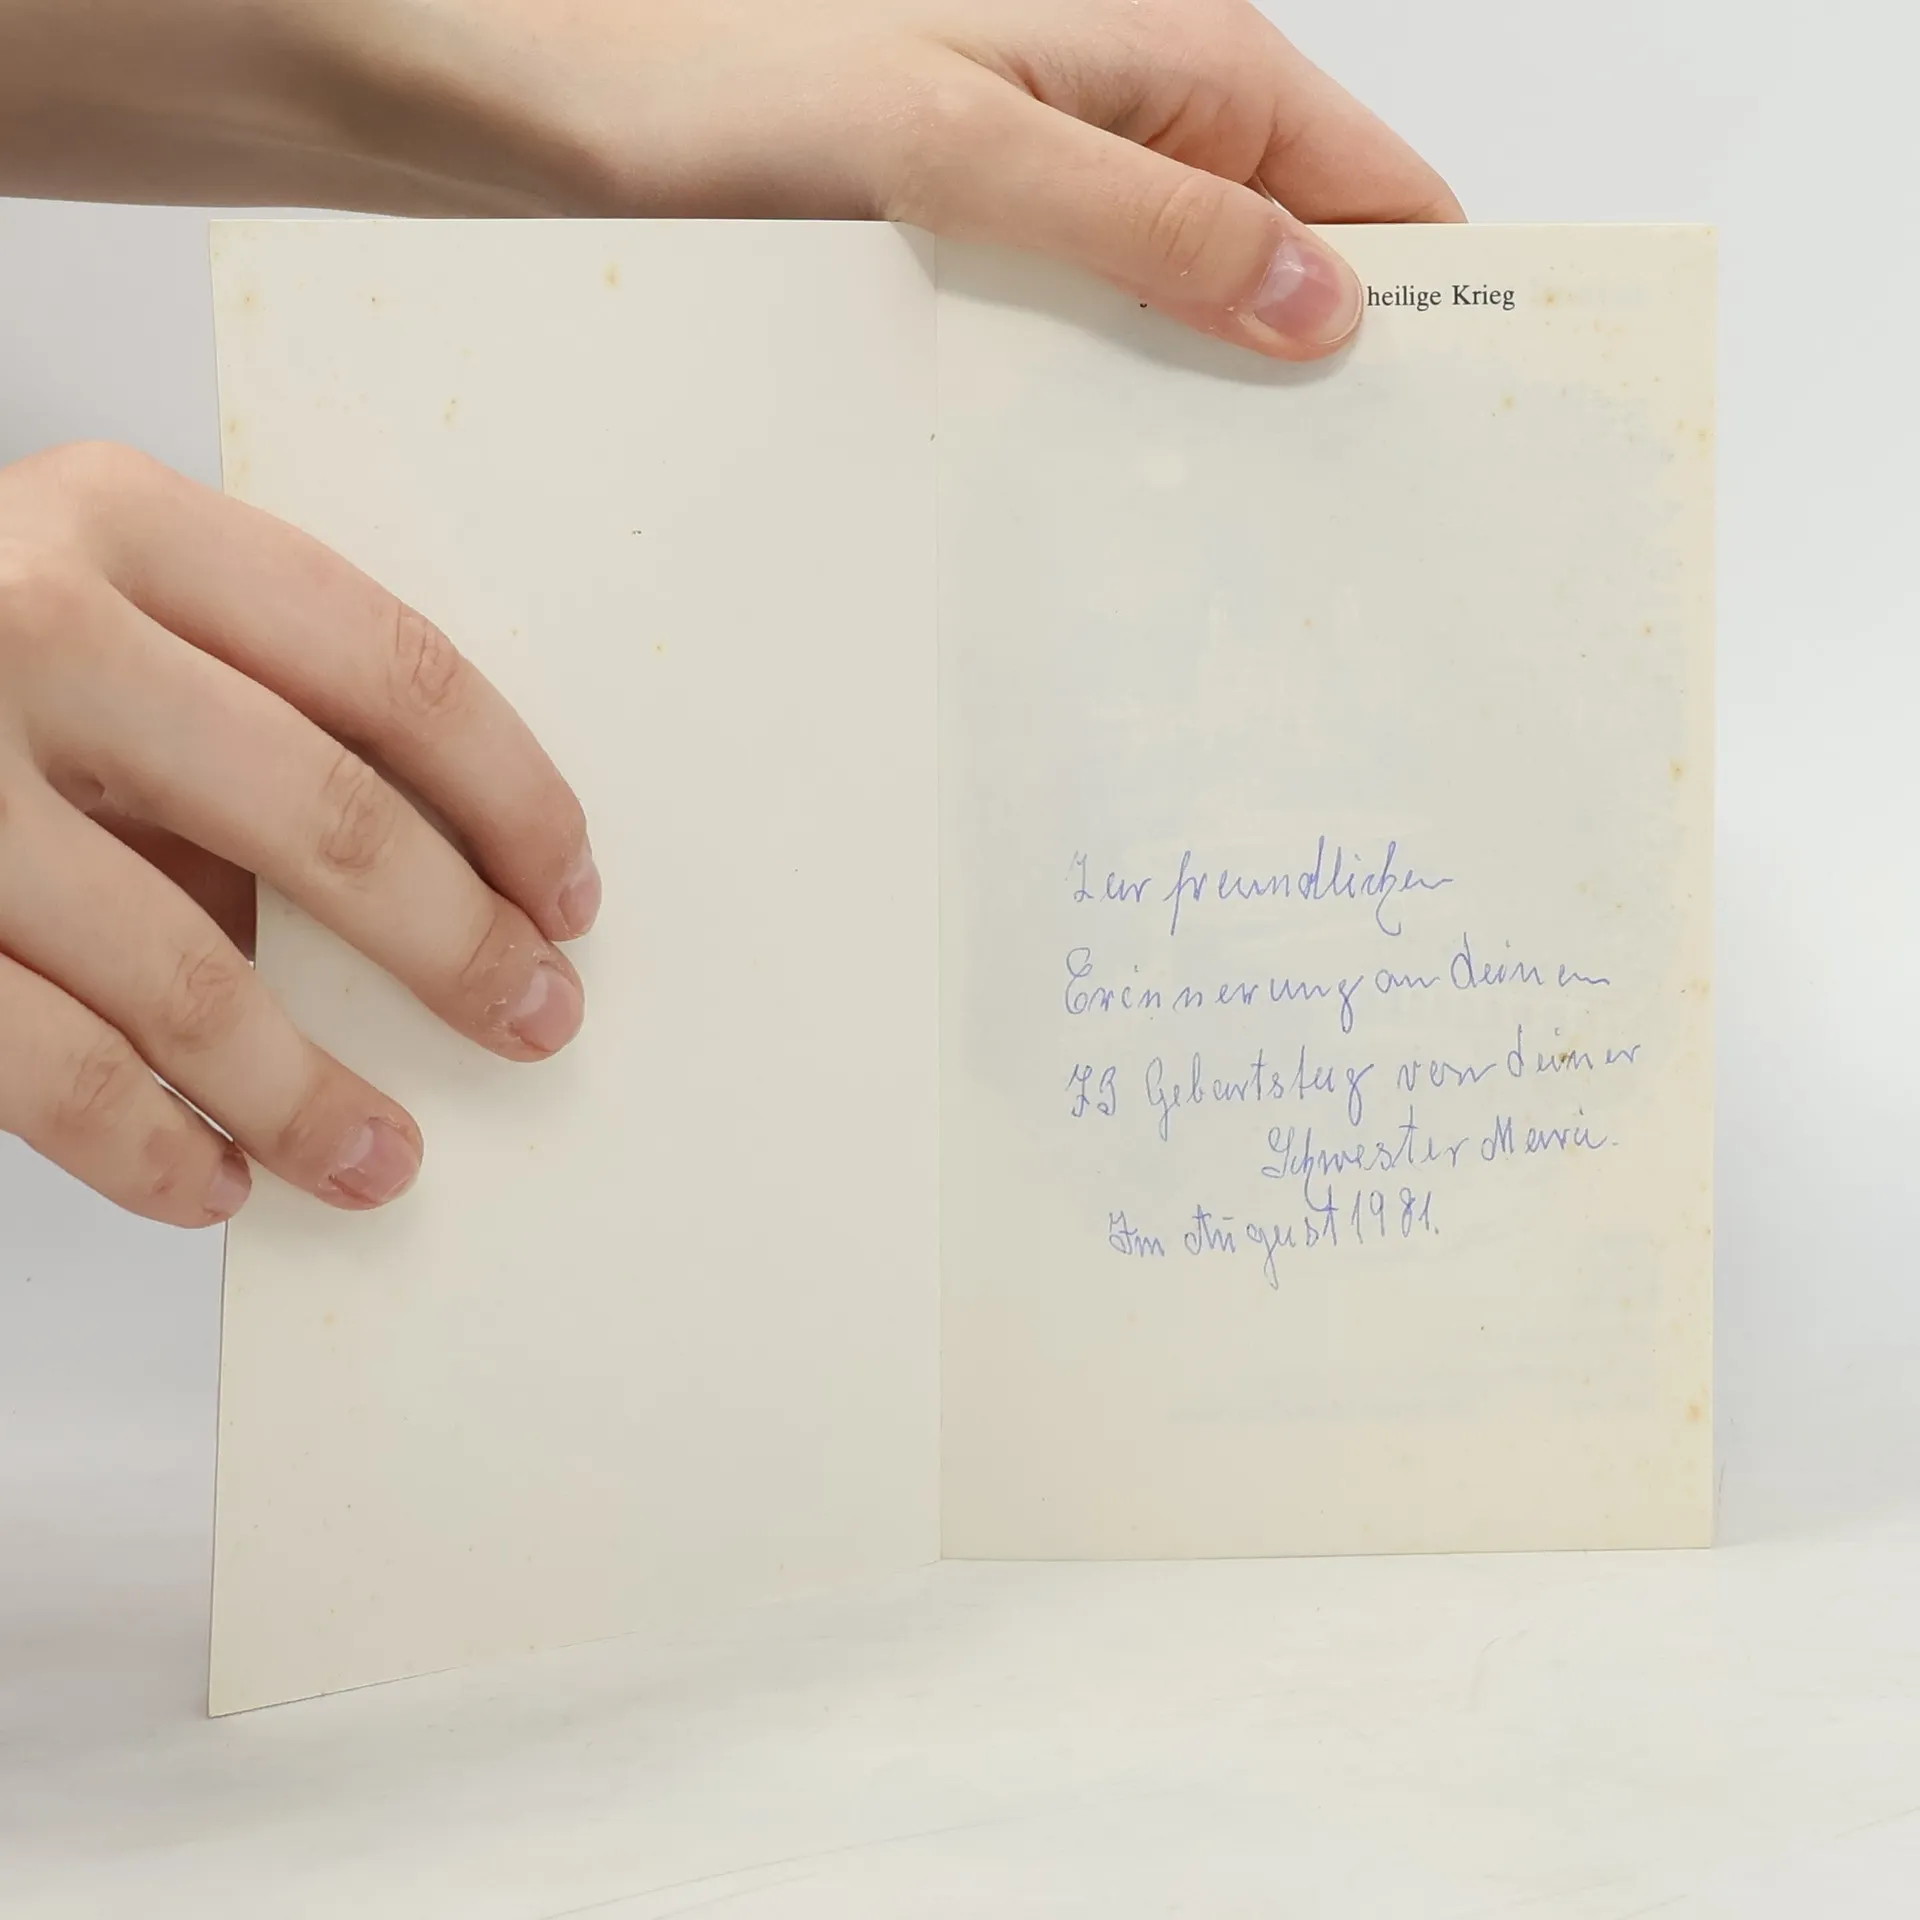 heilige Krieg
Zur freundlichen
Erinnerung an deinen
73 Geburtstag von deiner
Schwester Maria.
Im August 1981.